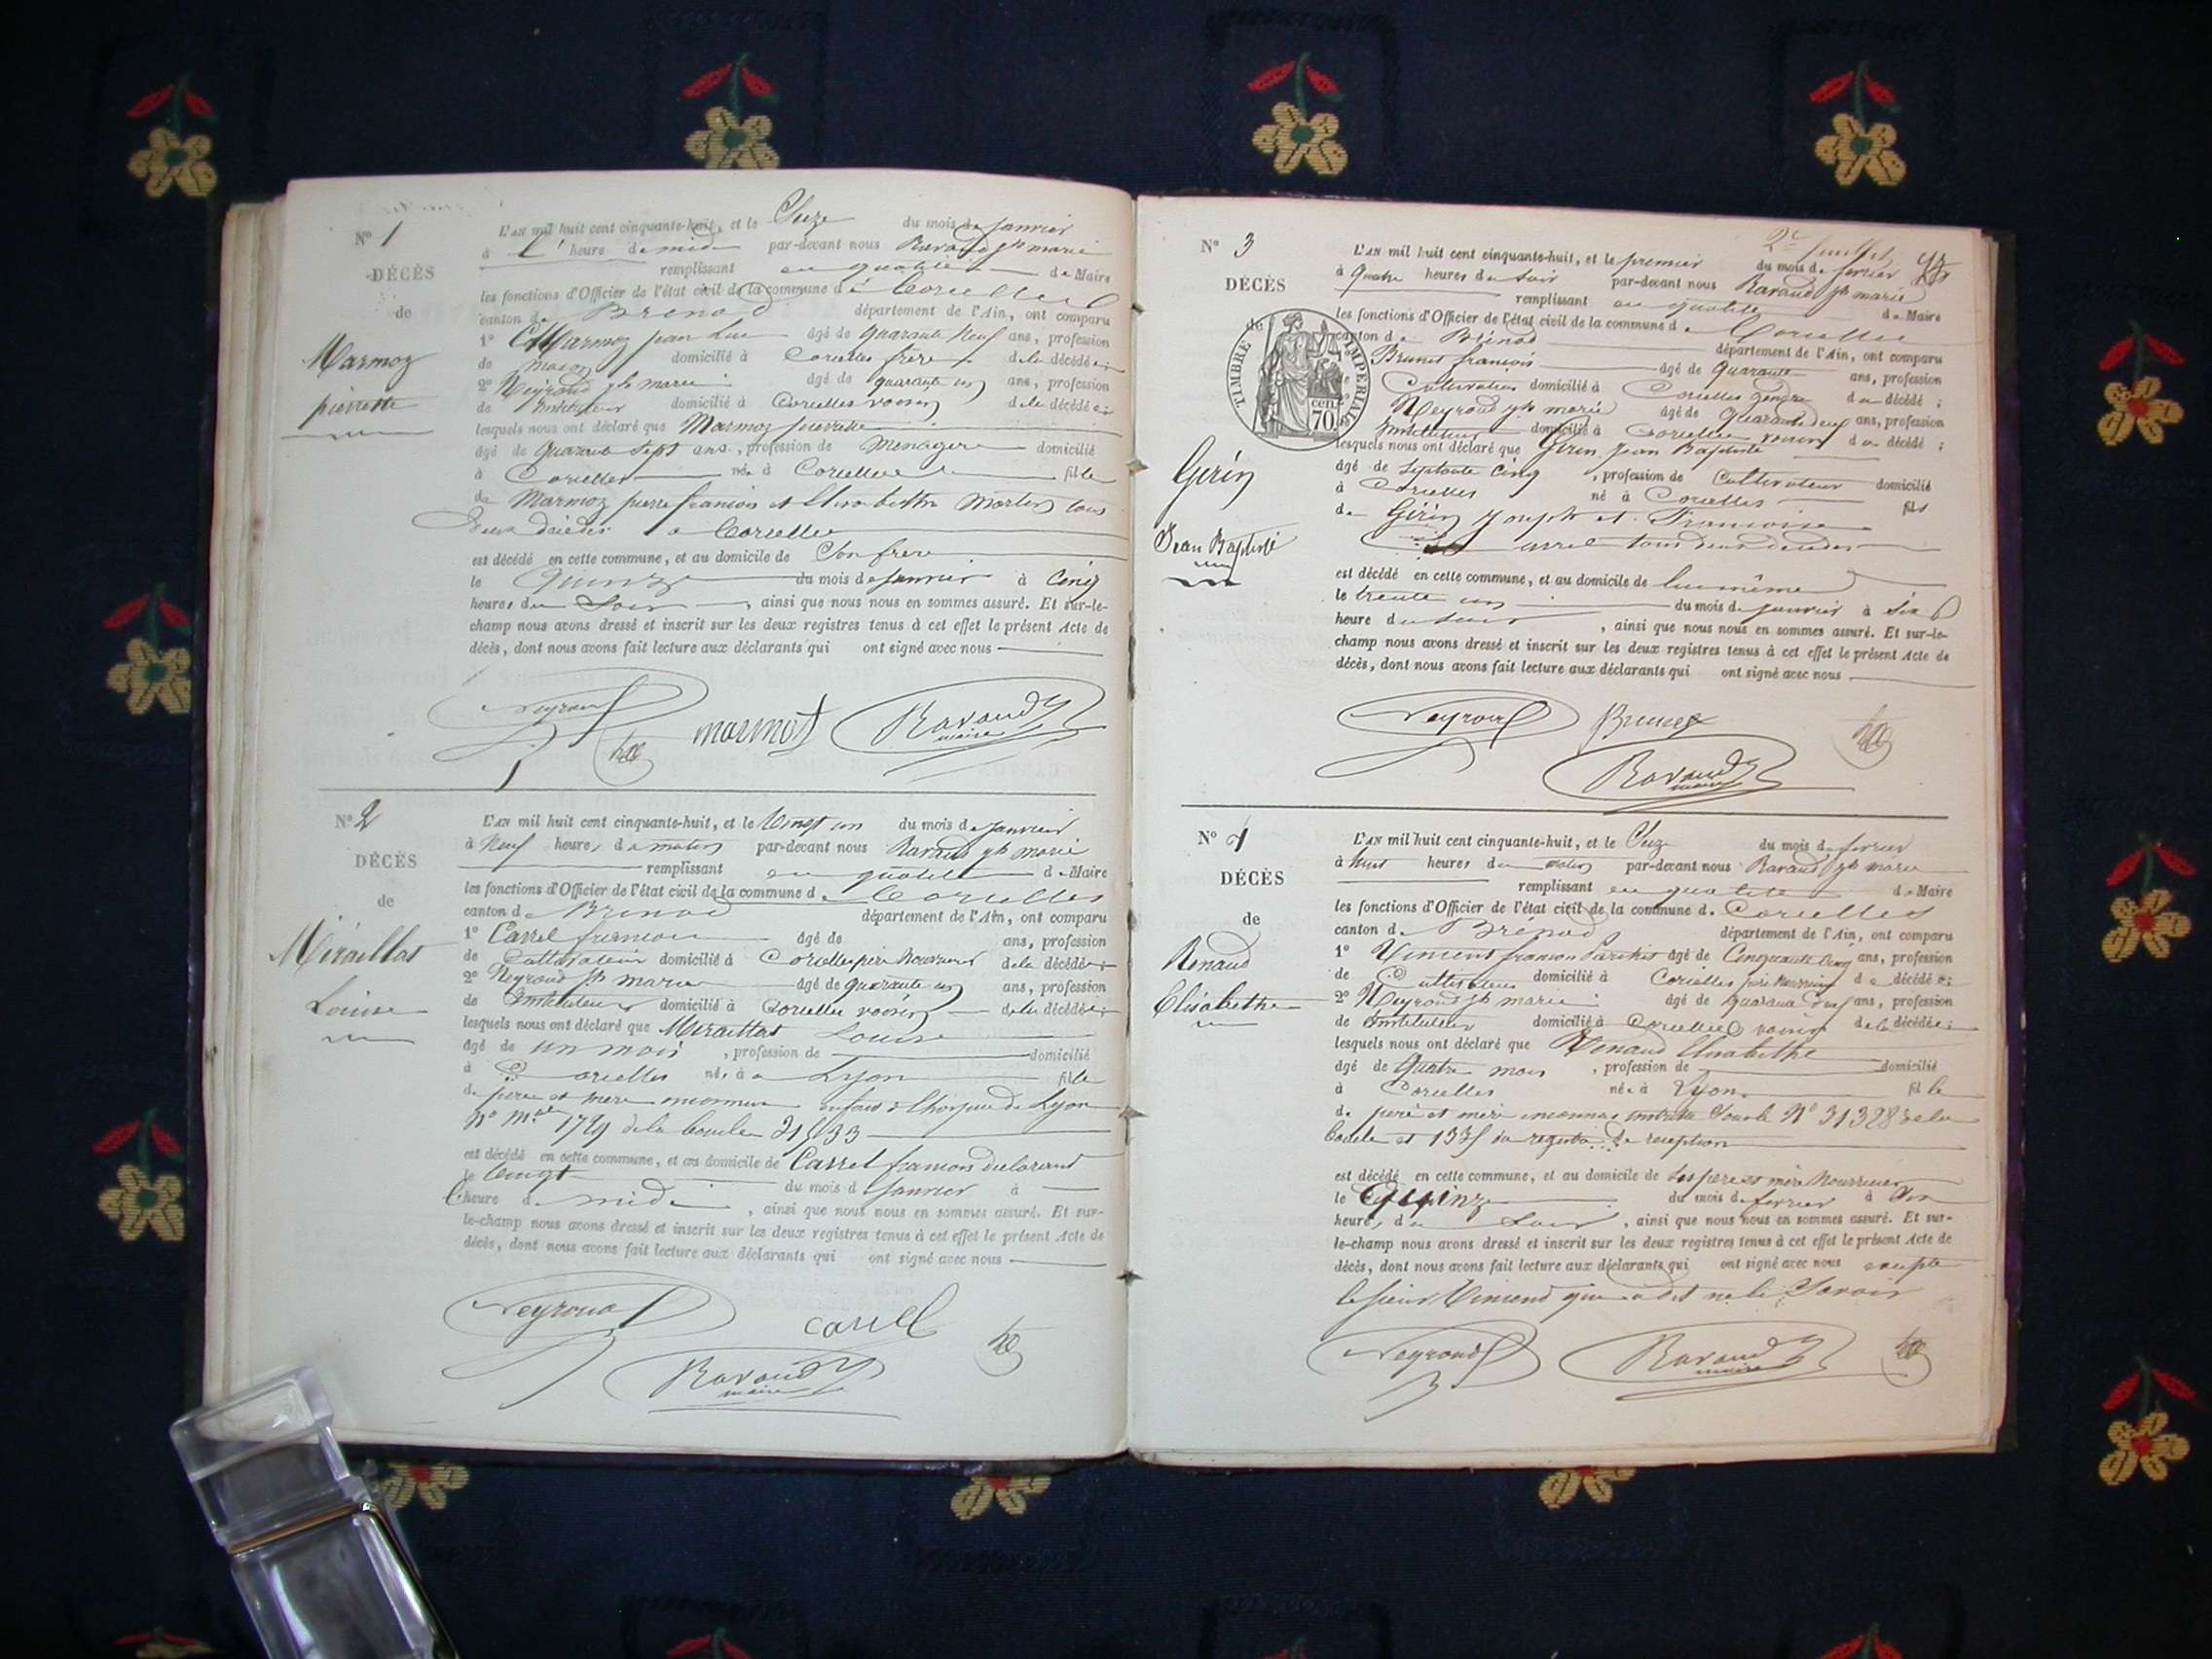 N° 1
DÉCÈS
de
Marmoz
pierrette
L'AN mil huit cent cinquante-huit, et le Seize du mois de janvier
à l' heure de midi par-devant nous Ravaud jh marie
remplissant en qualité de Maire
les fonctions d'Officier de l'état civil de la commune de Corcelles
canton de Brenod département de l'Ain, ont comparu
1° Marmoz jean Luc âgé de quarante neuf ans, profession
de maçon domicilié à Corcelles frère de la décédée;
2° Neyroud jh marie âgé de quarante un ans, profession
de Instituteur domicilié à Corcelles voisin de la décédée;
lesquels nous ont déclaré que Marmoz pierrette
âgé de Quarante Sept ans, profession de Menagere domicilié
à Corcelles née à Corcelles fille
de Marmoz pierre francois et Elisabeth tous
Deux décédés a Corcelles
est décédé en cette commune, et au domicile de Son frere
le Quinze du mois de janvier à Cinq
heures du Soir, ainsi que nous nous en sommes assuré. Et sur-le-
champ nous avons dressé et inscrit sur les deux registres tenus à cet effet le présent Acte de
décès, dont nous avons fait lecture aux déclarants qui ont signé avec nous
Neyroud marmoz Ravaud
maire
N° 2
DÉCÈS
de
Miraillat
Louise
L'AN mil huit cent cinquante-huit, et le Vingt un du mois de janvier
à Neuf heures du matin par-devant nous Ravaud jh marie
remplissant en qualité de Maire
les fonctions d'Officier de l'état civil de la commune de Corcelles
canton de Brenod département de l'Ain, ont comparu
1° Carrel francois âgé de ans, profession
de Cultivateur domicilié à Corcelles père Nourricier de la décédée;
2° Neyroud jh marie âgé de quarante un ans, profession
de Instituteur domicilié à Corcelles voisin de la décédée;
lesquels nous ont déclaré que Miraillat Louise
âgé de un mois, profession de domicilié
à Corcelles née à Lyon fille
de pere et mere inconnus de Lyon
N° 1729 de la boucle 31533
est décédé en cette commune, et au domicile de Carrel francois
le Vingt du mois d janvier à
heure de midi, ainsi que nous nous en sommes assuré. Et sur-
le-champ nous avons dressé et inscrit sur les deux registres tenus à cet effet le présent Acte de
décès, dont nous avons fait lecture aux déclarants qui ont signé avec nous
Neyroud Carrel
Ravaud
maire
2e feuillet
N° 3
DÉCÈS
de
TIMBRE IMPERIAL
70 cent.
Gérin
Jean Baptiste
L'AN mil huit cent cinquante-huit, et le premier du mois de fevrier
à Quatre heures du soir par-devant nous Ravaud jh marie
remplissant en qualité de Maire
les fonctions d'Officier de l'état civil de la commune de Corcelles
canton de Brénod département de l'Ain, ont comparu
Brunet francois âgé de Quarante ans, profession
de Cultivateur domicilié à Corcelles gendre du décédé;
Neyroud jh marie âgé de Quarante deux ans, profession
Instituteur domicilié à Corcelles voisin du décédé;
lesquels nous ont déclaré que Gérin Jean Baptiste
âgé de Septante Cinq, profession de Cultivateur domicilié
à Corcelles né à Corcelles fils
de Gérin Joseph et Francoise
tous deux décédés
est décédé en cette commune, et au domicile de lui même
le trente un du mois de janvier à Six
heure du soir, ainsi que nous nous en sommes assuré. Et sur-le-
champ nous avons dressé et inscrit sur les deux registres tenus à cet effet le présent Acte de
décès, dont nous avons fait lecture aux déclarants qui ont signé avec nous
Neyroud Brunet
Ravaud
maire
N° 4
DÉCÈS
de
Renaud
Elisabethe
L'AN mil huit cent cinquante-huit, et le Seize du mois de fevrier
à huit heures du matin par-devant nous Ravaud jh marie
remplissant en qualité de Maire
les fonctions d'Officier de l'état civil de la commune de Corcelles
canton de Brénod département de l'Ain, ont comparu
1° Vincent francois âgé de Cinquante Cinq ans, profession
de Cultivateur domicilié à Corcelles père Nourricier de décédée;
2° Neyroud jh marie âgé de quarante deux ans, profession
de Instituteur domicilié à Corcelles voisin de la décédée;
lesquels nous ont déclaré que Renaud Elisabethe
âgé de Quatre mois, profession de domicilié
à Corcelles née à Lyon fille
de pere et mère inconnus Sous le N° 31328 de la
boucle et du registre de reception
est décédé en cette commune, et au domicile de Ses père et mère Nourriciers
le Quinze du mois de fevrier à
heures du Soir, ainsi que nous nous en sommes assuré. Et sur-
le-champ nous avons dressé et inscrit sur les deux registres tenus à cet effet le présent Acte de
décès, dont nous avons fait lecture aux déclarants qui ont signé avec nous excepté
le sieur Vincent qui a dit ne le Savoir
Neyroud Ravaud
maire